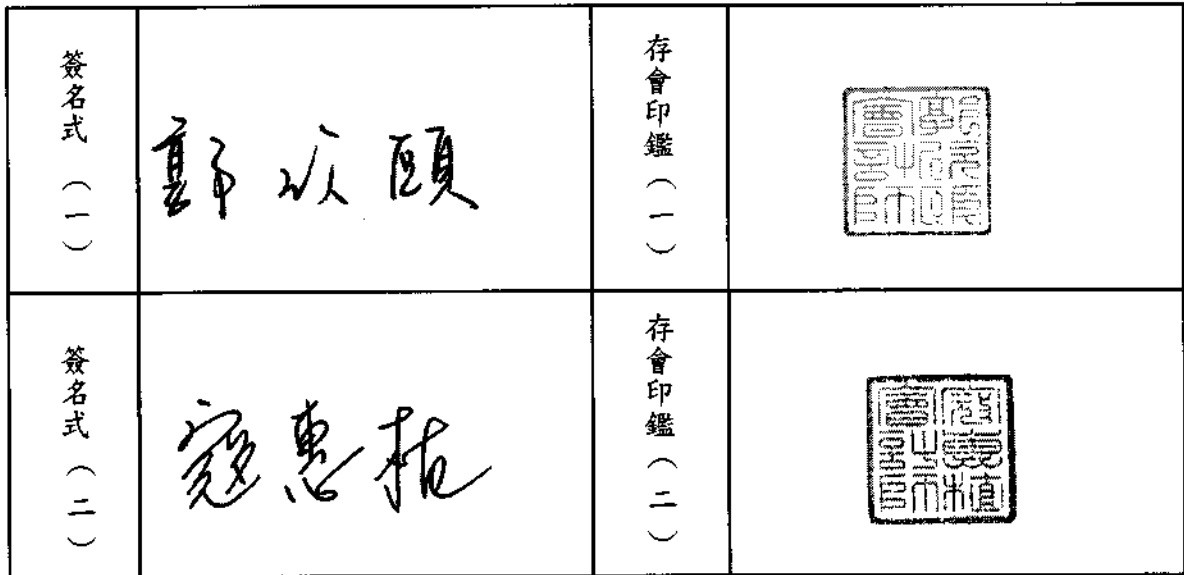 簽名式（一）
郭欣頤
存會印鑑（一）
簽名式（二）
寇惠植
存會印鑑（二）